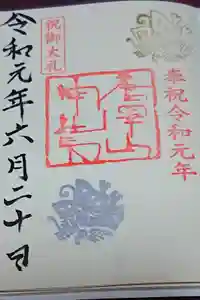 奉祝令和元年
祝御大礼
令和元年六月二十日